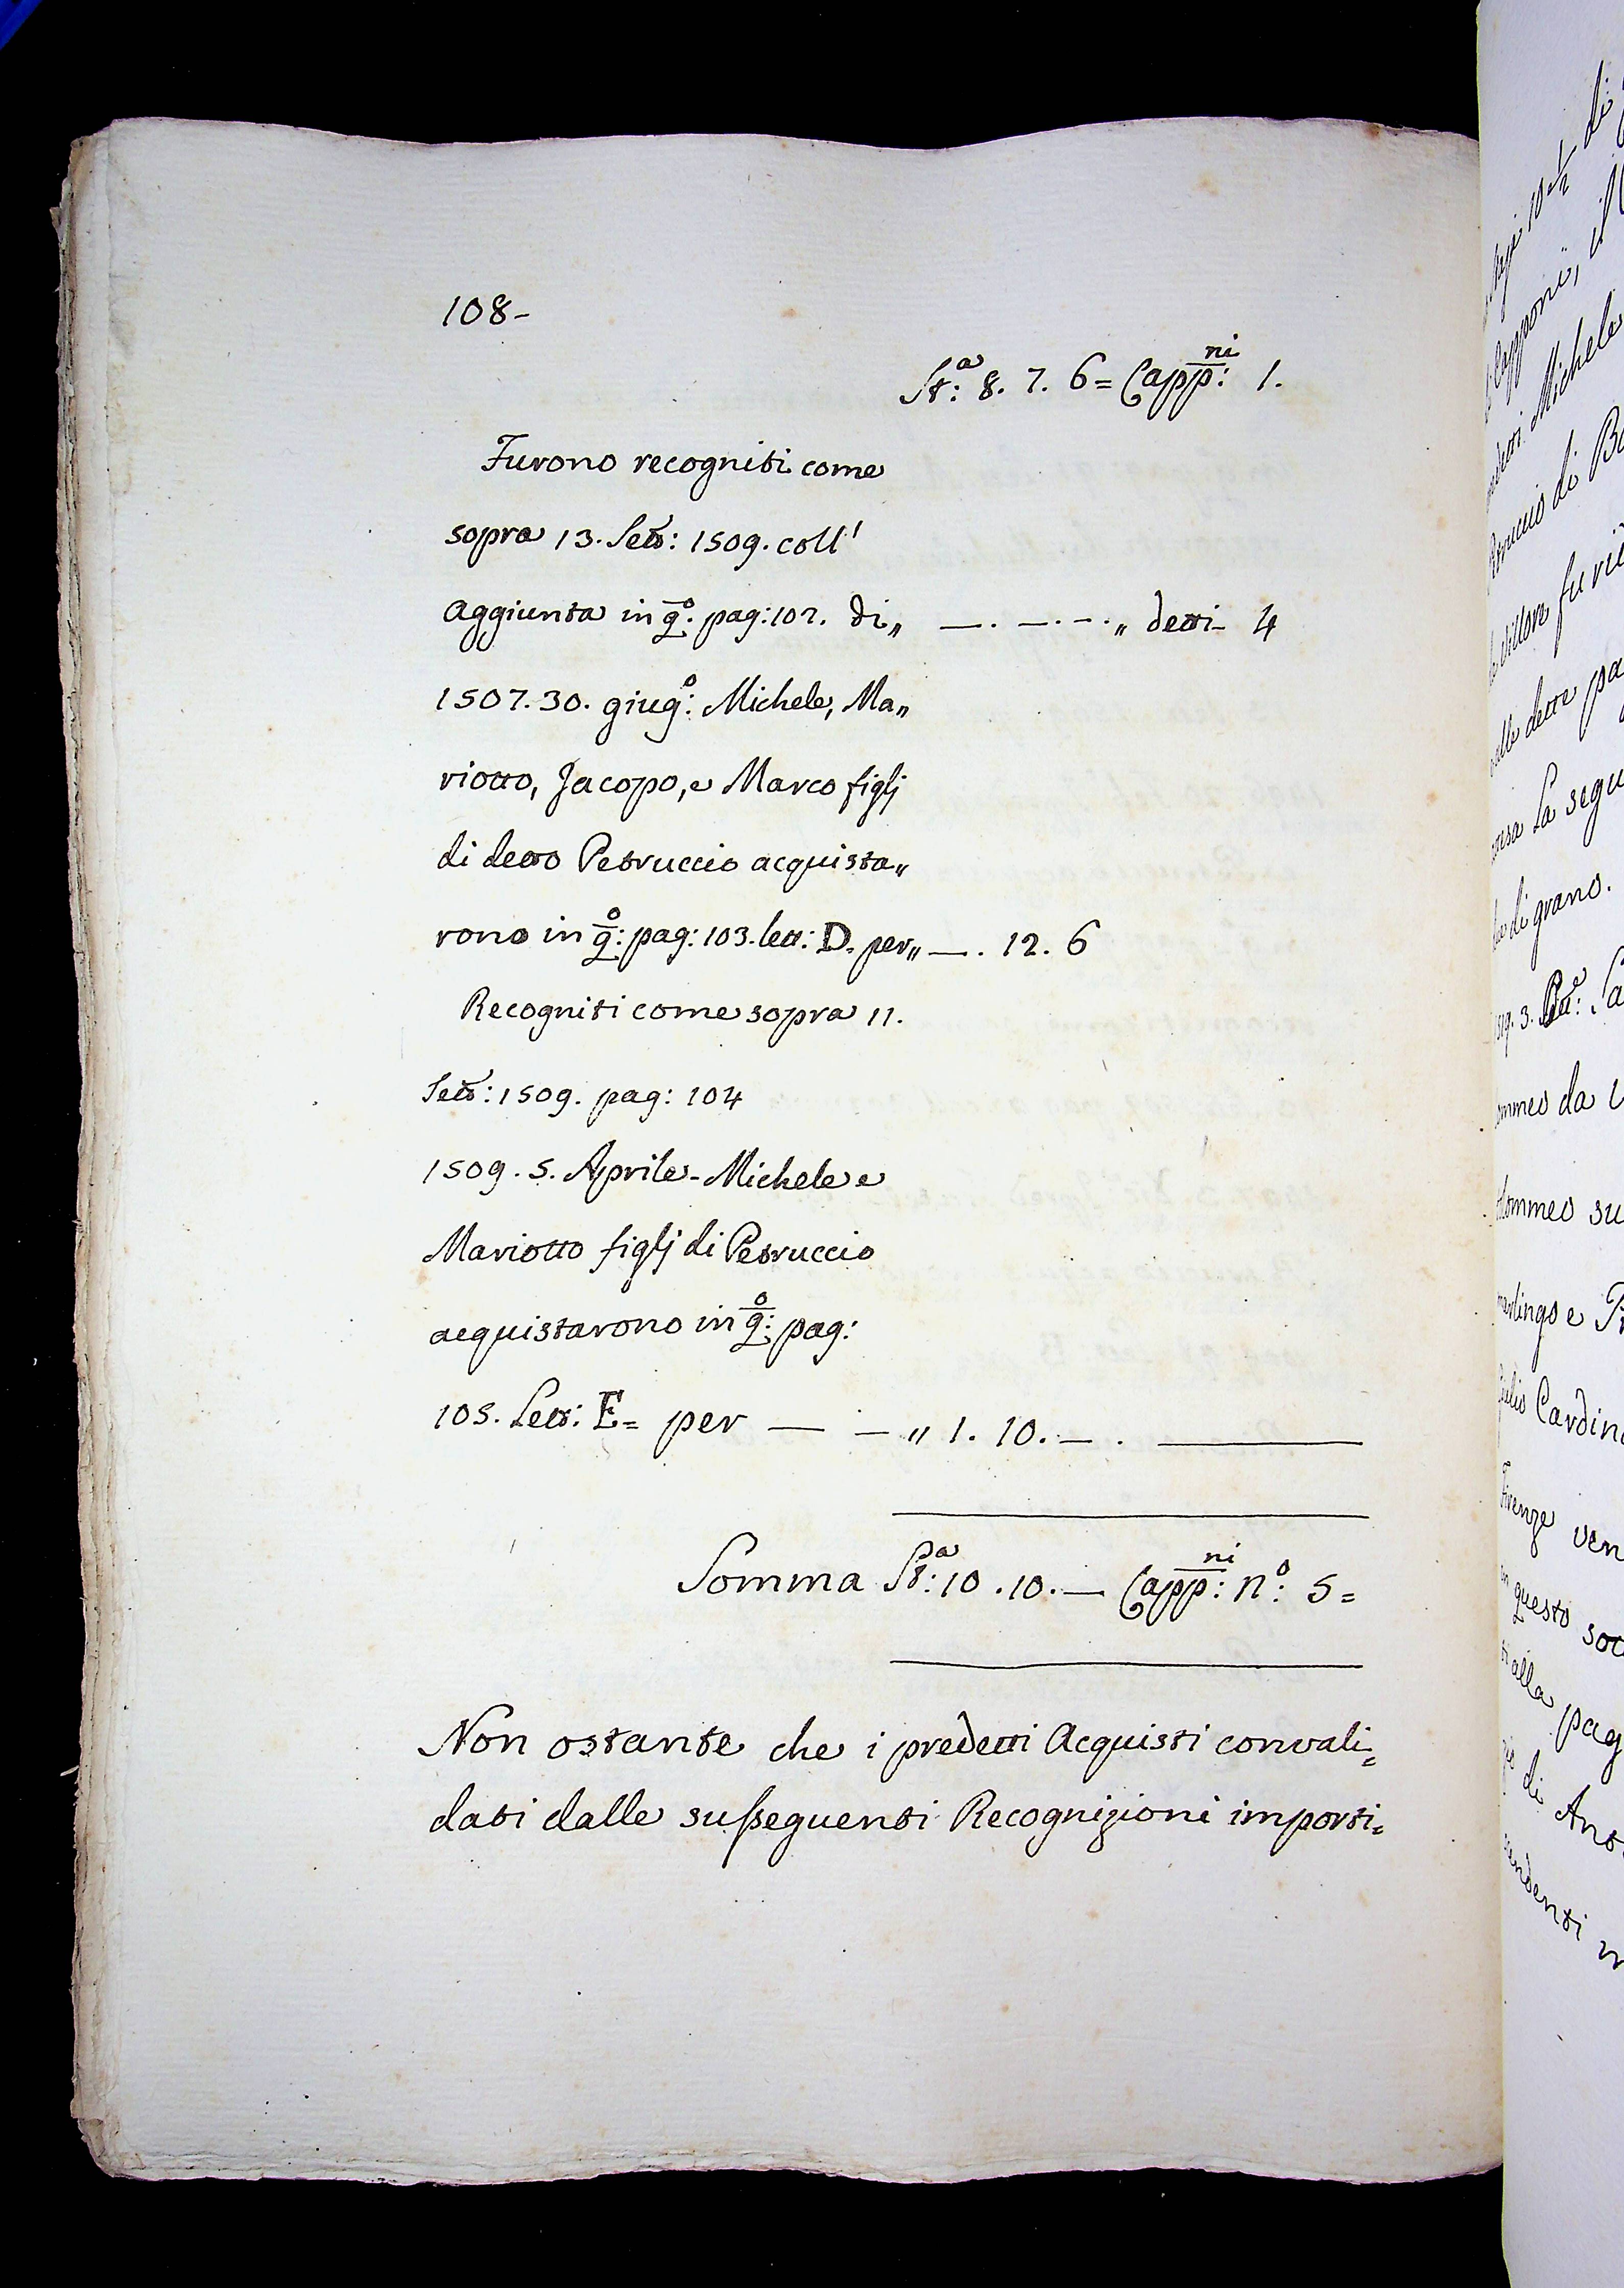 108-
St:ª 8. 7. 6= Capp:ni 1.
Furono recogniti come
sopra 13. Sett̃: 1509. coll'
Aggiunta in q:º pag: 102. di„ —. —. —. „ detti- 4
1507. 30. giug:º Michele, Ma„
riotto, Jacopo, e Marco figlj
di detto Petruccio acquista„
rono in q:º pag: 103. lett: D. per„ —. 12. 6
Recogniti come sopra 11.
Sett̃: 1509. pag: 104
1509. 5. Aprile - Michele e
Mariotto figlj di Petruccio
acquistarono in q:º pag:
105. Lett: E= per — — „ 1. 10. — .
Somma St:ª 10. 10. — Capp:ni n:º 5=
Non ostante che i predetti Acquisti convali=
dati dalle susseguenti Recognizioni importi=
10 1/2 di
Capponi, il
Michele
di Bo
furie
alle dette pa
La segu
di grano.
3.
da
su
e
Cardin
ven
questo soc
alla pag
di Ant